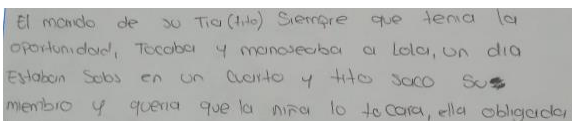 El marido de su Tia (tito) Siempre que tenia la
oportunidad, Tocaba y manoseaba a Lola, un dia
Estaban Solos en un cuarto y tito saco su
miembro y queria que la niña lo tocara, ella obligada,